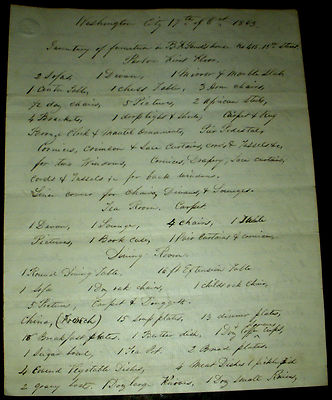 Washington City 17th of Oct 1863
Inventory of furniture in B. Sands house No 411. 15th Street,
Parlor First Floor.
2 Sofas, 1 Divan, 1 Mirror & Marble Slab
1 Centre Table, 1 Chess Table, 3 Arm chairs,
1/2 doz chairs, 5 Pictures, 2
4 Brackets, 1 drop light & shade, Carpet & Rug
& Clock & Mantel Ornaments, Pair Pedestal,
Cornices, & Lace Curtains, cords & Tassels &c,
for two Windows, Cornices, Drapery, Lace curtains,
cords & Tassels &c for back windows.
Linen covers for Chairs, Divans, & Lounges.
Tea Room. Carpet
1 Divan, 1 Lounge, 4 chairs, 1 Table
Pictures, 1 Book case, 1 Pair Curtains & cornices,
Dining Room.
1 Round Dining Table. 16 ft Extension Table
1 Sofa 1 Doz oak chairs, 1 child's oak chair,
5 Picture, Carpet & Druggett
China, (French) 15 Soup plates, 13 dinner plates,
18 Breakfast plates. 1 Butter dish, 1 Doz Coffee cups,
1 Sugar bowl, 1 Tea Pot. 2 Bread plates,
4 Covered Vegetable Dishes, 4 Meat Dishes, 1 pickle
2 gravy boats, 1 Doz large Knives, 1 Doz Small Knives,